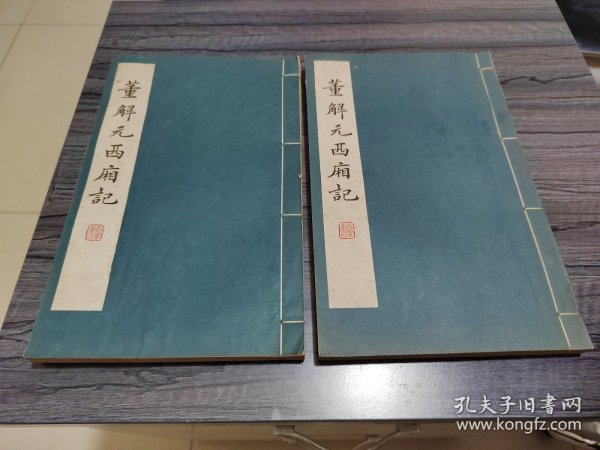 董解元西廂記
董解元西廂記
孔夫子旧書网
www.kongfz.com